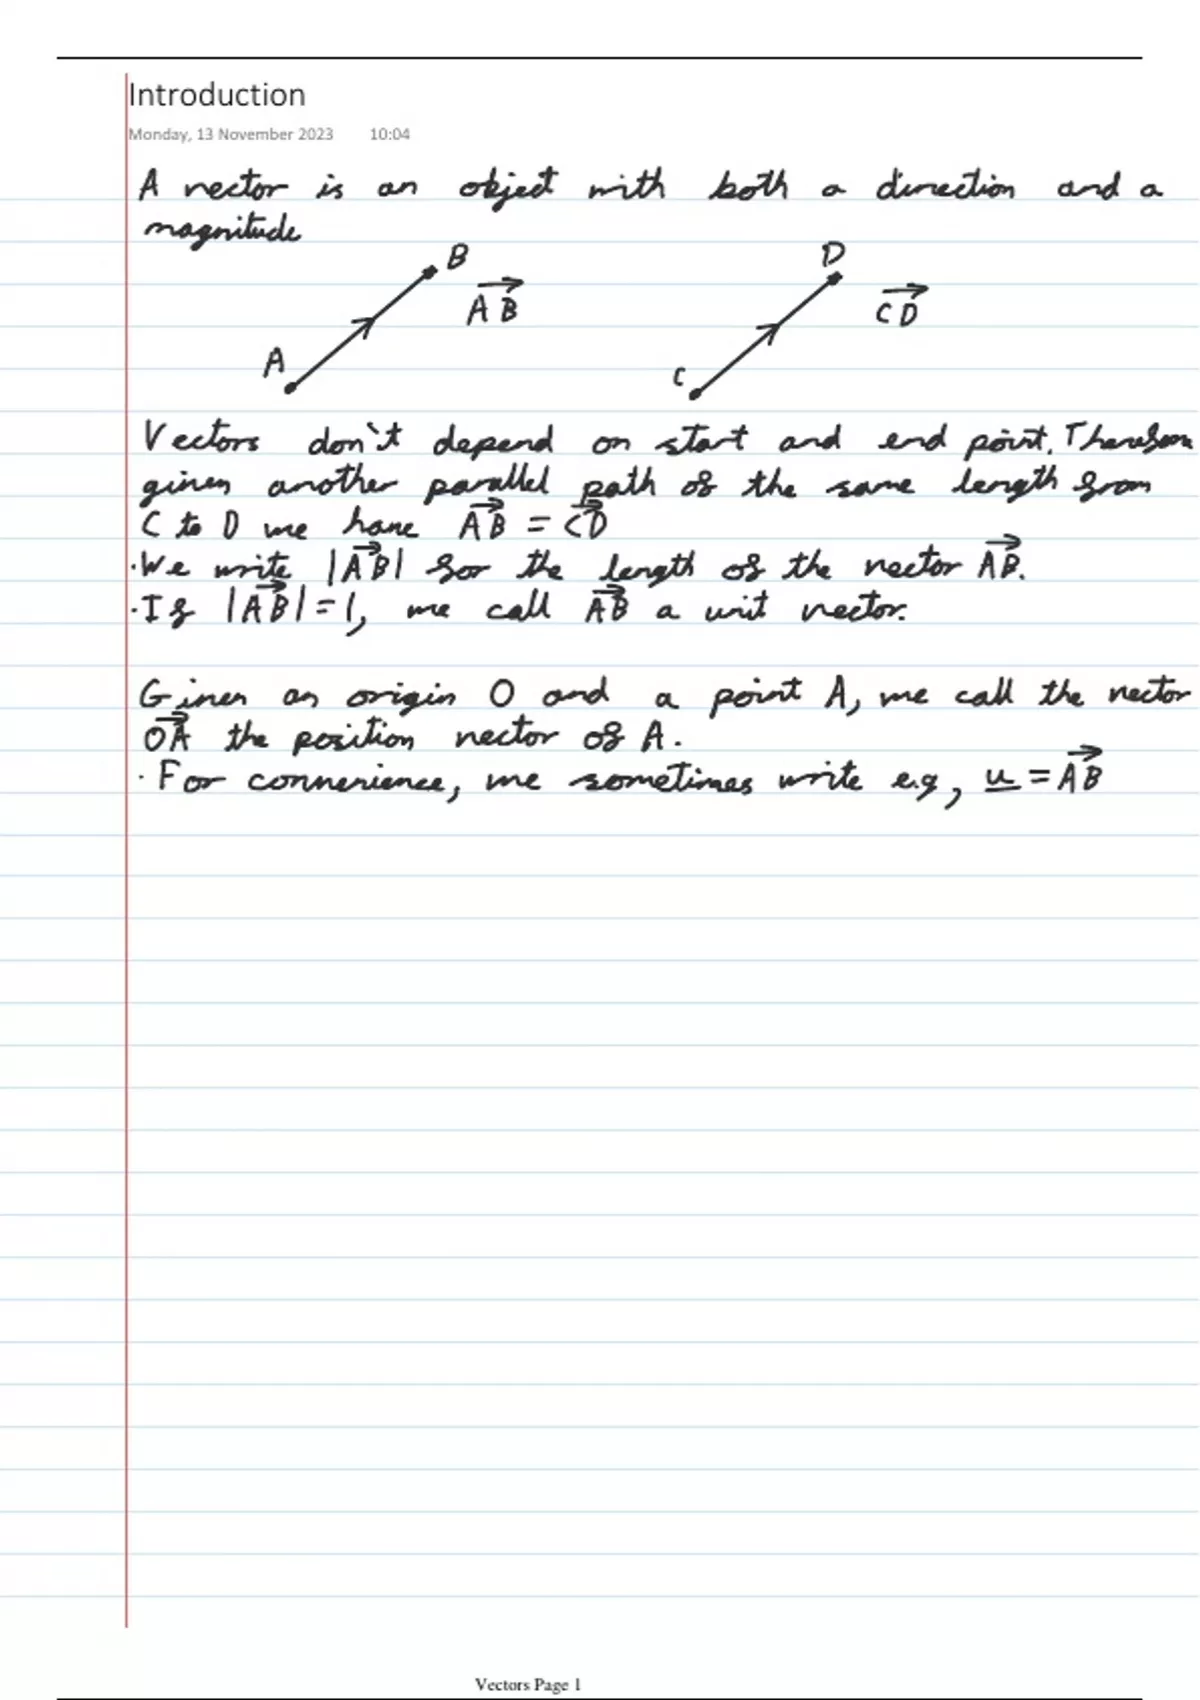 Introduction
Monday, 13 November 2023 10:04
A vector is an object with both a direction and a
magnitude
B
D
A⃗B⃗
C⃗D⃗
A
C
Vectors don't depend on start and end point. Therefore
given another parallel path of the same length from
C to D we have A⃗B⃗ = C⃗D⃗
·We write |A⃗B⃗| for the length of the vector A⃗B⃗.
·If |A⃗B⃗|=1, we call A⃗B⃗ a unit vector.
Given an origin O and a point A, we call the vector
O⃗A⃗ the position vector of A.
· For convenience, we sometimes write e.g, u̲ = A⃗B⃗
Vectors Page 1